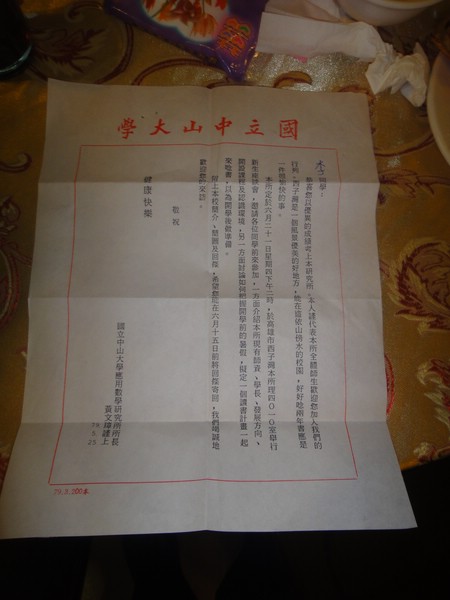 學大山中立國
同學：
恭喜您以優異的成績考上本研究所，本人謹代表本所全體師生歡迎您加入我們的
行列。西子灣是一個風景優美的好地方，能在這依山傍水的校園，好好唸兩年書應是
一件很愉快的事。
本所定於六月二十一日星期四下午二時，於高雄市西子灣本所理四〇一〇室舉行
新生座談會，邀請各位同學前來參加，一方面介紹本所現有師資、學長、發展方向、
開設課程及認識環境，另一方面討論如何把握開學前的暑假，擬定一個讀書計畫一起
來唸書，以為開學後做準備。
附上本校簡介、簡圖及回條，希望您能在六月十五日前將回條寄回，我們竭誠地
歡迎您的來訪。
敬祝
健康快樂
國立中山大學應用數學研究所所長
黃文璋謹上
79. 5. 25
79.3.000本